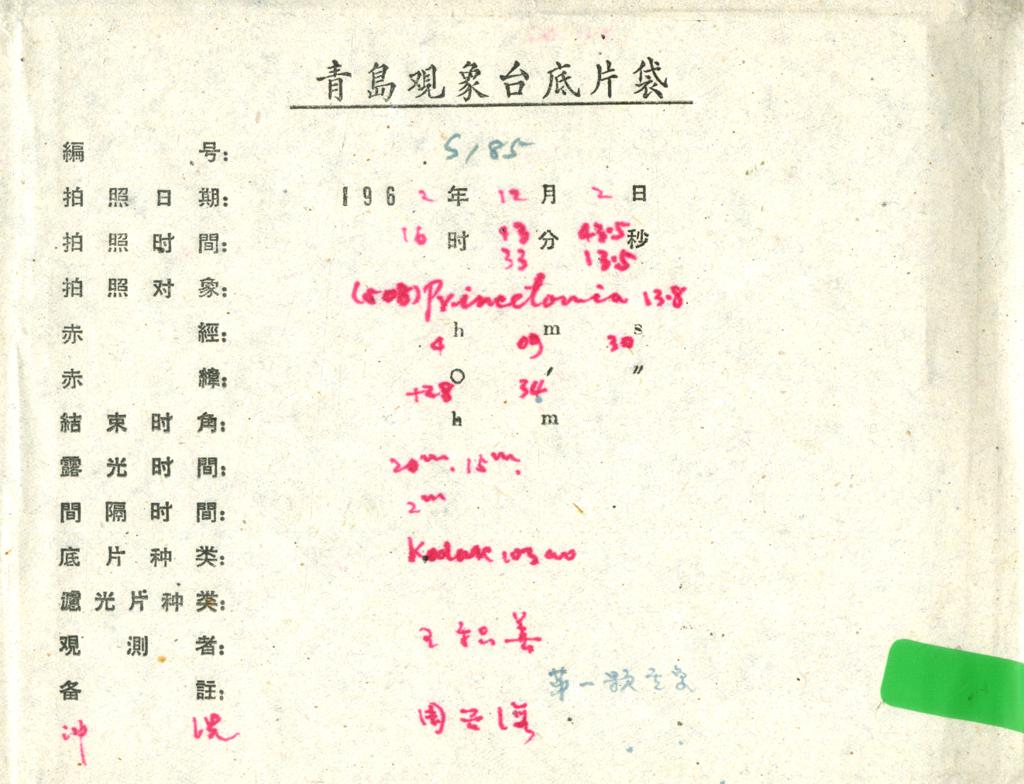 青島观象台底片袋
編号: S185
拍照日期: 1962年12月2日
拍照时間: 16时13分43.5秒
33 13.5
拍照对象: (508) Princetonia 13.8
赤經: 4h 09m 30s
赤緯: +28° 34′ ″
結束时角: h m
露光时間: 20m. 15m.
間隔时間: 2m
底片种类: Kodak 103 aO
濾光片种类:
观測者: 王 善
备註: 第一颗
冲洗 周